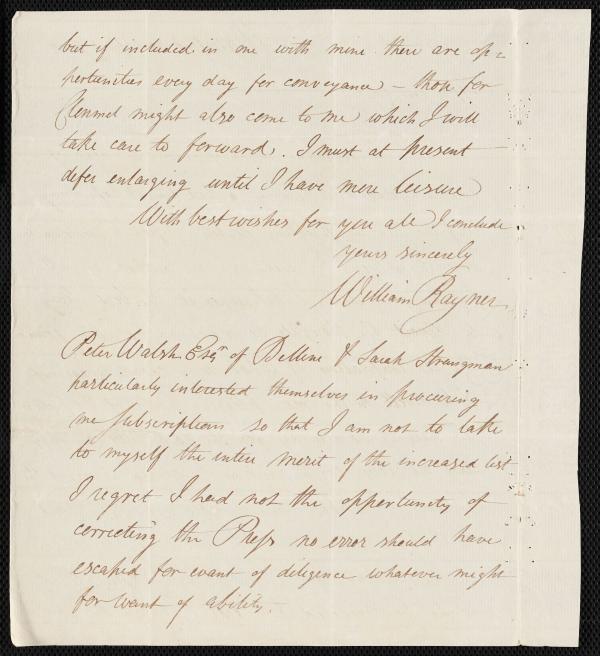 but if included in one with mine there are op=
pertunities every day for conveyance – those for
Clonmel might also come to me which I will
take care to forward. I must at present
defer enlarging until I have more leisure
With best wishes for you all I conclude
yours sincerely
William Rayner
Peter Walsh Esqr of Belline & Sarah Strangman
particularly interested themselves in procuring
me Subscriptions so that I am not to take
to myself the entire merit of the increased list
I regret I had not the opportunity of
correcting the Press no error should have
escaped for want of diligence whatever might
for want of ability.